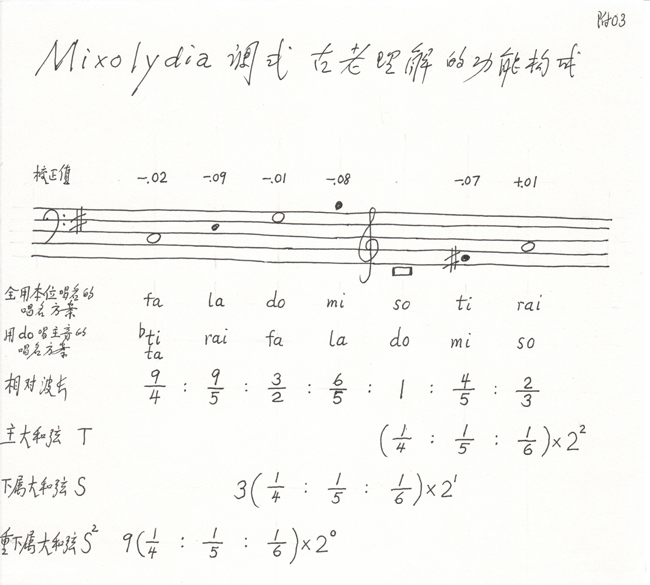 附03
Mixolydia 调式 古老理解的功能构式
校正值 -.02 -.09 -.01 -.08 -.07 +.01
全用本位唱名的
唱名方案 fa la do mi so ti rai
用do唱主音的 ♭ti rai fa la do mi so
唱名方案 ta
相对波长 9/4 : 9/5 : 3/2 : 6/5 : 1 : 4/5 : 2/3
主大和弦 T (1/4 : 1/5 : 1/6)×2²
下属大和弦 S 3(1/4 : 1/5 : 1/6)×2¹
重下属大和弦 S² 9(1/4 : 1/5 : 1/6)×2⁰